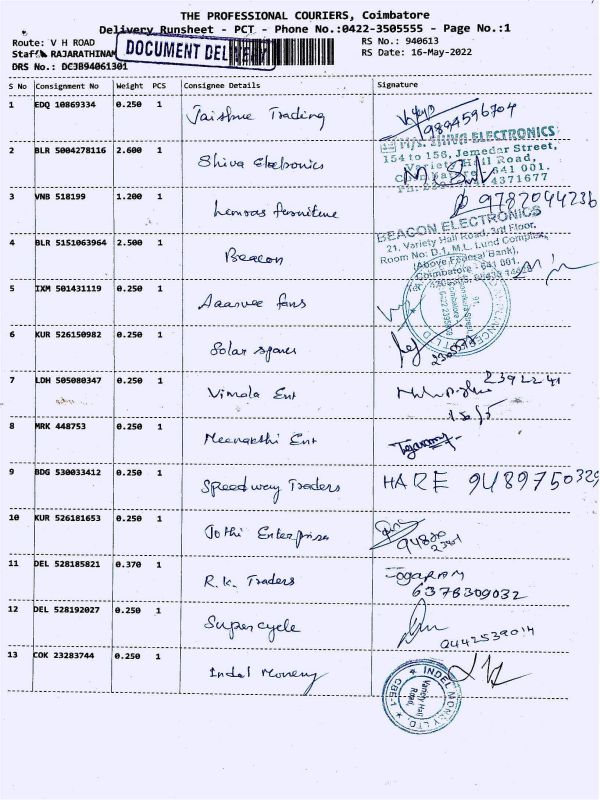 THE PROFESSIONAL COURIERS, Coimbatore
Delivery Runsheet - PCT - Phone No.:0422-3505555 - Page No.:1
Route: V H ROAD
RS No.: 940613
Staff: RAJARATHINAM
DOCUMENT DEL
RS Date: 16-May-2022
DRS No.: DCJB94061301
S No Consignment No Weight PCS Consignee Details Signature
1 EDQ 10869334 0.250 1 Jaishree Trading 9894596704
2 BLR 5004278116 2.600 1 Shiva Electronics
M/s. SHIVA ELECTRONICS
154 to 156, Jemedar Street,
Variety Hall Road,
641 001.
4371677
3 VNB 518199 1.200 1 furniture 9782044236
4 BLR 5151063964 2.500 1 Beacon
BEACON ELECTRONICS
21, Variety Hall Road, 3rd Floor,
Room No: D.1, M.L. Lund Complex,
(Above Federal Bank),
Coimbatore - 641 001.
5 IXM 501431119 0.250 1 Aaarvee fans
6 KUR 526150982 0.250 1 Solar spares
7 LDH 505080347 0.250 1 Vimala Ent 2392241
8 MRK 448753 0.250 1 Meenakshi Ent
9 BDG 530033412 0.250 1 Speedway Traders HARE 9489750329
10 KUR 526181653 0.250 1 Jothi Enterprise 94820
11 DEL 528185821 0.370 1 R.K. Traders JogaRAM
6378309032
12 DEL 528192027 0.250 1 Super cycle 0442539014
13 COK 23283744 0.250 1 Indel Money
INDEL MONEY LTD
Variety Hall
Road,
CBE-1